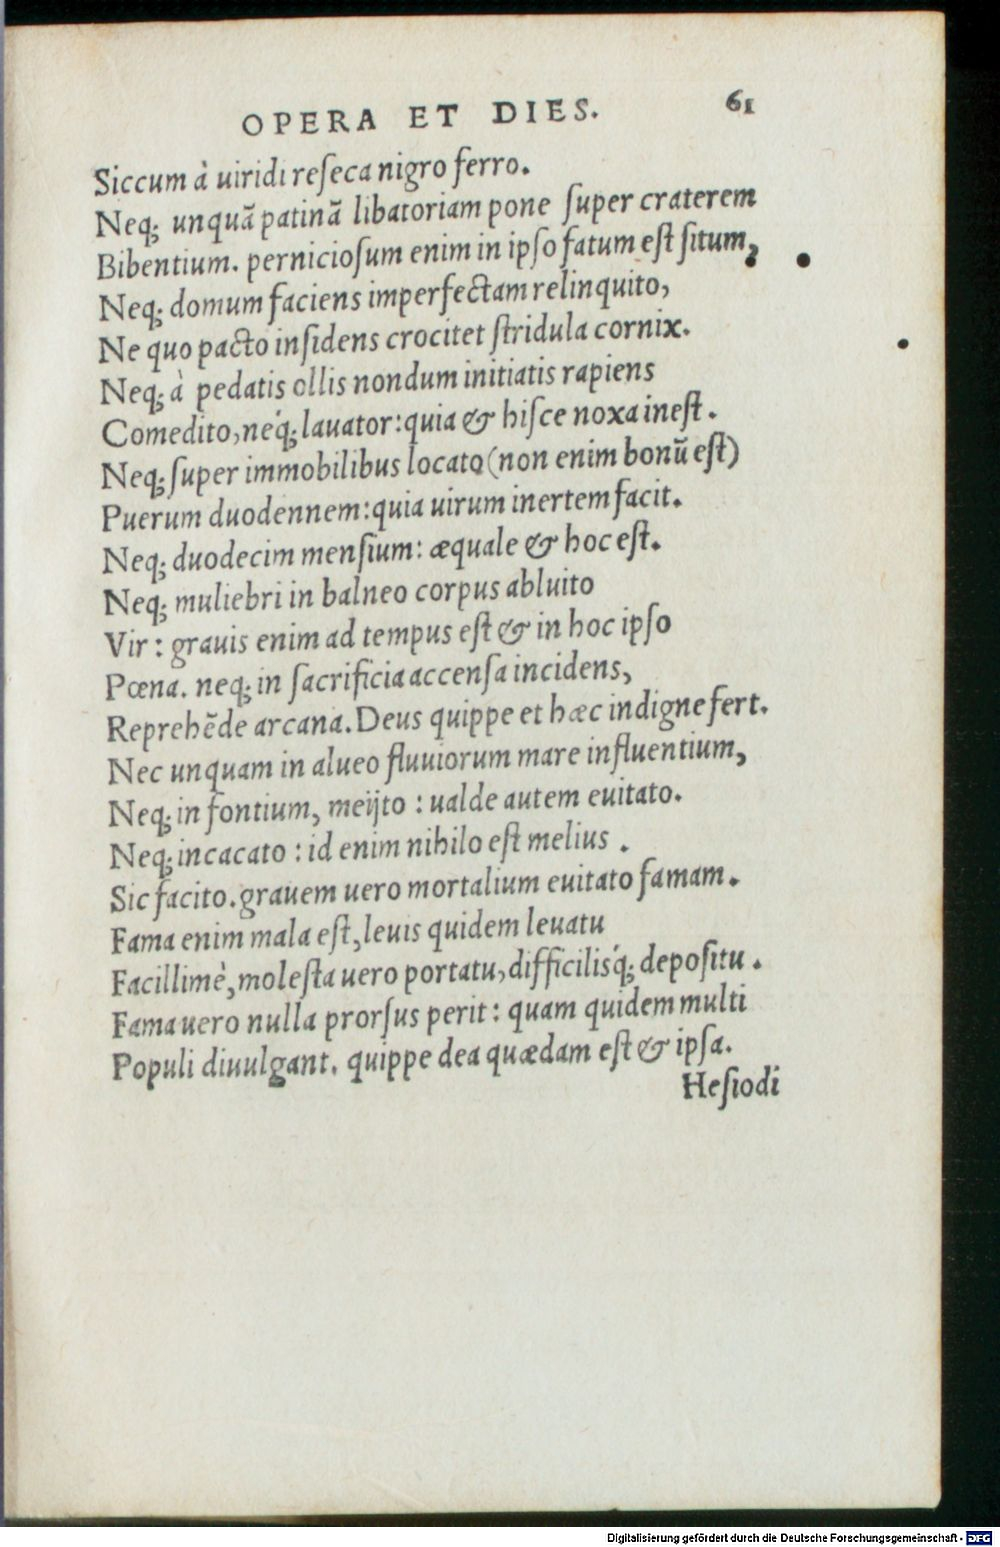 OPERA ET DIES. 61
Siccum à uiridi reſeca nigro ferro.
Neq; unquā patinā libatoriam pone ſuper craterem
Bibentium. pernicioſum enim in ipſo fatum eſt ſitum,
Neq; domum faciens imperfectam relinquito,
Ne quo pacto inſidens crocitet ſtridula cornix.
Neq; à pedatis ollis nondum initiatis rapiens
Comedito, neq́; lauator: quia & hiſce noxa ineſt.
Neq; ſuper immobilibus locato (non enim bonū eſt)
Puerum duodennem: quia uirum inertem facit.
Neq; duodecim menſium: æquale & hoc eſt.
Neq; muliebri in balneo corpus abluito
Vir: grauis enim ad tempus eſt & in hoc ipſo
Pœna. neq; in ſacrificia accenſa incidens,
Reprehēde arcana. Deus quippe et hæc indigne fert.
Nec unquam in alueo fluuiorum mare influentium,
Neq; in fontium, meijto: ualde autem euitato.
Neq; incacato: id enim nihilo eſt melius.
Sic facito. grauem uero mortalium euitato famam.
Fama enim mala eſt, leuis quidem leuatu
Facillimè, moleſta uero portatu, difficilisq́; depoſitu.
Fama uero nulla prorſus perit: quam quidem multi
Populi diuulgant. quippe dea quædam eſt & ipſa.
Heſiodi
Digitalisierung gefördert durch die Deutsche Forschungsgemeinschaft - DFG